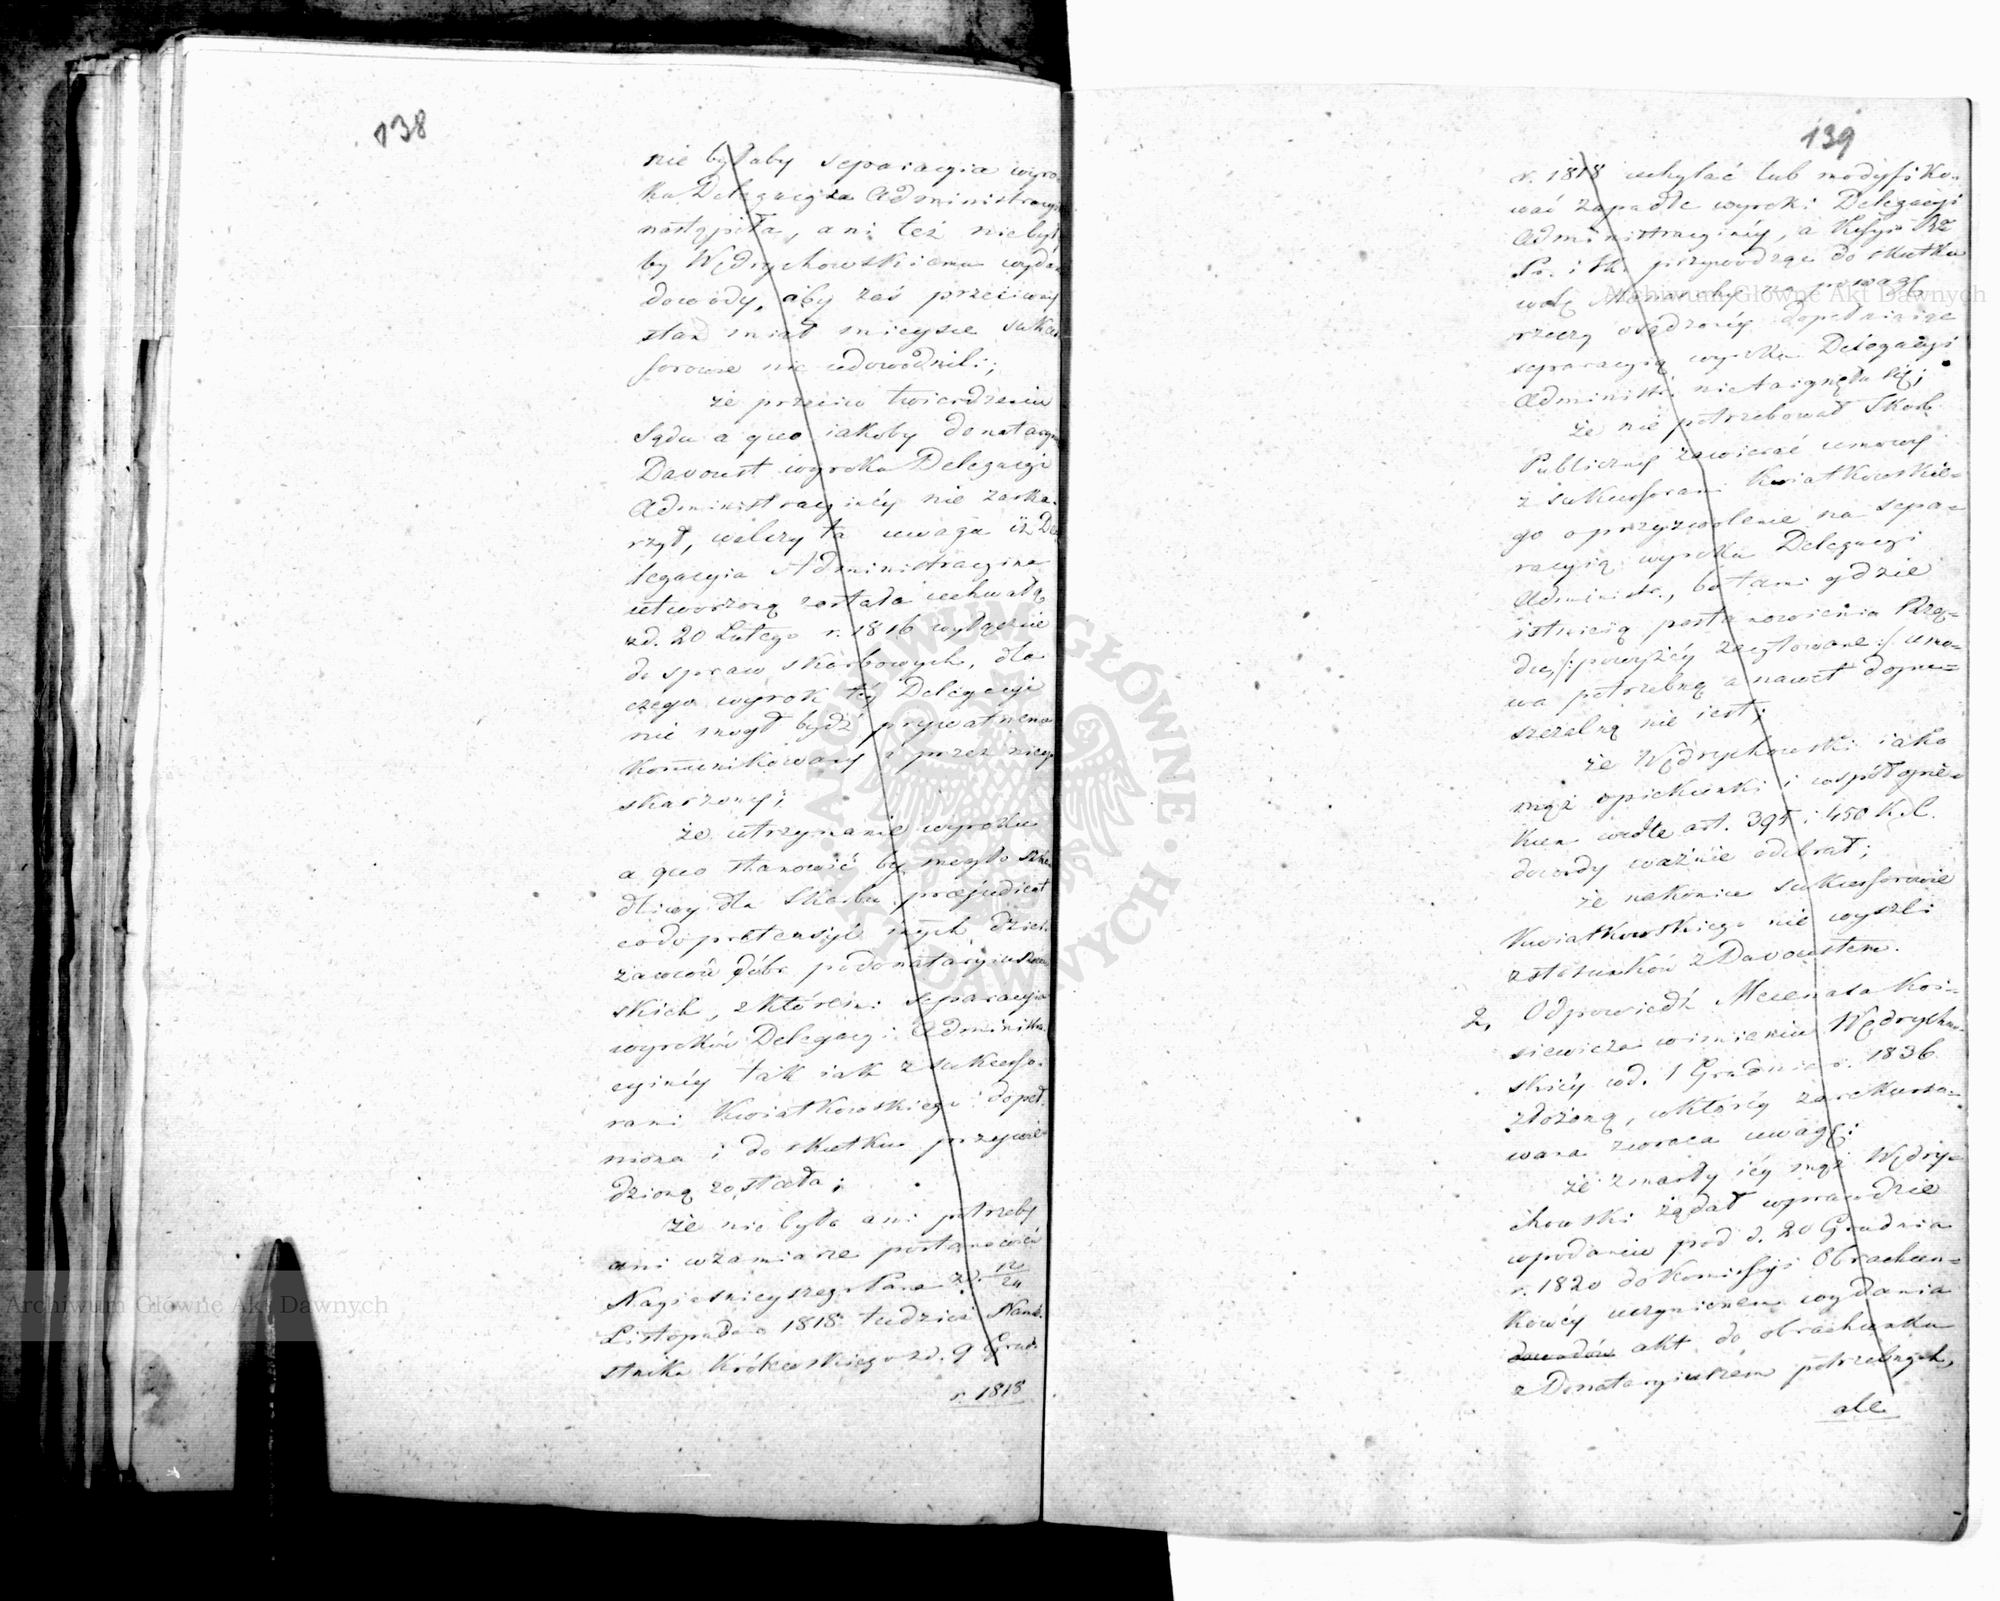 138
nie byłaby separacyia wyro-
ku Delegacyia Administracyi
nastąpiła, ani też nie był
by Wędrychowskiemu wydan
dowody, aby zaś przeciwny
stan miał mieysce sukces
sorowie nie udowodnili;
że przeciw twierdzeniu
Sądu a quo iakoby donataryu
Davoust wyroku Delegacyi
Administracyinéy nie zaska-
rzył, walczy ta uwaga iż De
legacyia Administracyina
utworzoną została uchwałą
zd. 20 Lutego r. 1816 wyłącznie
do spraw skarbowych, dla
czego wyrok téy Delegacyi
nie mógł bydź prywatnemu
kom̃unikowany i przez niego
skarżony;
że utrzymanie wyroku
a quo stanowić by mogło szko
dliwy dla Skarbu præjudicat
co do pretensyi inych dzier
żawców dóbr podonataryiusz
skich, z któremi separacyia
wyroków Delegacyi Administra
cyinéy tak iak z sukcesso-
rami Kwiatkowskiego dopeł-
niona i do skutku przywie-
dzioną została;
że nie było ani potrzeby
ani w zamiarze postanowień
Nayiaśnieyszego Pana zd. 12/24
Listopada 1818. tudzież Name-
stnika Królewskiego zd. 9 Grud.
r. 1818
139
r. 1818 uchylać lub modyfiko-
wać zapadłe wyroki Delegacyi
Administracyinéy, a Kom̃issya Rz
Pr. i Sk. przywodząc do skutku
wolę Monarchy na powagę
rzeczy osądzonéy dopełniaiąc
separacyią wyroku Delegacyi
Administr. nie targnęła się;
że nie potrzebował Skarb
Publiczny zawierać umowy
z sukcessorami Kwiatkowskie-
go o przyzwolenie na sepa-
racyią wyroku Delegacyi
Administr., bo tam gdzie
istnieią postanowienia Rzą-
du /: powyżéy zacytowane :/ umo-
wa potrzebną a nawet dopu-
szczalną nie iest;
że Wędrychowski iako
mąż opiekunki i współopie-
kun wedle art. 395 i 450 K.C.
dowody ważnie odebrał;
że nakoniec sukcessorowie
Kwiatkowskiego nie wyszli
z stosunków z Davoustem.
2, Odpowiedź Mecenasa Kosi-
siewicza w imieniu Wędrychow-
skiéy w d. 1 Grudnia r. 1836
złożoną, w któréy zarekurso-
wana zwraca uwagę:
że zmarły iéy mąż Wędry-
chowski żądał wprawdzie
w podaniu pod d. 20 Grudnia
r. 1820 do Kom̃issyi Obrachun-
kowéy uczynionem wydania
dowodów akt do obrachunku
z Donataryiuszem potrzebnych,
ale
Archiwum Główne Akt Dawnych
Archiwum Główne Akt Dawnych
ARCHIWUM GŁÓWNE AKT DAWNYCH